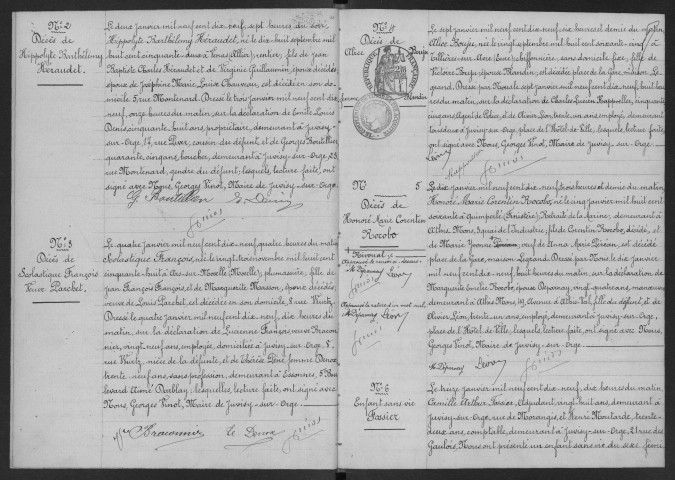 N° 2
Décès de
Hippolyte Barthélemy
Héraudet.
Le deux janvier mil neuf cent dix neuf, sept heures du soir
Hippolyte Barthélemy Héraudet, né le dix-huit septembre mil
huit cent cinquante-deux à (Allier) rentier, fils de Jean
Baptiste Charles Héraudet et de Virginie Guillaumin, époux décédés
époux de Joséphine Marie Louise Chauveau, est décédé en son do-
micile, 5 rue Montenard. Dressé le trois janvier mil neuf cent dix
neuf, onze heures du matin, sur la déclaration de Emile Louis
Denis, cinquante-huit ans, propriétaire, demeurant à Juvisy-
sur-Orge, 17, rue Piver, cousin du défunt et de Georges Boutillier
quarante-cinq ans, boucher, demeurant à Juvisy-sur-Orge, 23
rue Montenard, gendre du défunt; lesquels, lecture faite, ont
signé avec Nous, Georges Vinot, Maire de Juvisy-sur-Orge.
G Boutillier E. Denis
N° 3
Décès de
Scolastique François
Veuve Paschet.
Le quatre janvier mil neuf cent dix-neuf, quatre heures du matin
Scolastique François, née le vingt-trois novembre mil huit cent
cinquante-huit à Ars-sur-Moselle (Moselle), plumassière, fille de
Jean François François et de Marguerite Masson, époux décédés,
veuve de Louis Paschet, est décédée en son domicile, 8 rue Wurtz.
Dressé le quatre janvier mil neuf cent dix-neuf, dix heures du
matin, sur la déclaration de Lucienne François, veuve Bracon-
nier, vingt-neuf ans, employée, domiciliée à Juvisy-sur-Orge, 8,
rue Wurtz, nièce de la défunte, et de Thérèse femme Denoz
trente-neuf ans, sans profession, demeurant à Essonnes, 5 Bou-
levard Aimé Darblay; lesquelles, lecture faite, ont signé avec
Nous, Georges Vinot, Maire de Juvisy-sur-Orge.
Vve Braconnier
N° 4
Décès de
Alice
Le sept janvier mil neuf cent dix-neuf, une heure et demie du matin
sans domicile fixe, fille de
est décédée place de la Gare, maison
Legrand. Dressé par Nous le sept janvier mil neuf cent dix-neuf, dix heures
du matin, sur la déclaration de Charles Lucien Happuillier, cinquante
cinq ans, Agent de Police, et de Olivier Léon, trente un ans, employé, demeurant
tous deux à Juvisy-sur-Orge, place de l'Hôtel de Ville, lesquels, lecture faite,
ont signé avec Nous, Georges Vinot, Maire de Juvisy-sur-Orge.
N° 5
Décès de
Honoré Marie Corentin
Rocobo
Le dix janvier mil neuf cent dix-neuf, trois heures et demie du matin
Honoré Marie Corentin Rocobo, né le cinq janvier mil huit cent
soixante à Quimperlé (Finistère), Retraité de la Marine, demeurant à
Athis-Mons, 3 quai de l'Industrie, fils de Corentin Rocobo, décédé, et
de Marie Jeanne veuf de Anna Marie est décédé
place de la Gare, maison Legrand. Dressé par Nous le dix janvier
mil neuf cent dix-neuf, dix heures du matin, sur la déclaration de
Marguerite Emilie Rocobo, épouse Depernay, vingt-quatre ans, manœuvre,
demeurant à Athis-Mons, 19, Avenue d'Athis-Val, fille du défunt, et de
Olivier Léon, trente-un ans, employé, demeurant à Juvisy-sur-Orge,
place de l'Hôtel de Ville, lesquels, lecture faite, ont signé avec Nous,
Georges Vinot, Maire de Juvisy-sur-Orge.
M. Depernay Léon
N° 6
Enfant sans vie
Fossier
Le treize janvier mil neuf cent dix-neuf, dix heures du matin,
Camille Arthur Fossier, Adjudant, vingt-huit ans, demeurant à
Juvisy-sur-Orge, rue de Morangis, et Henri Moutarde, trente-
deux ans, comptable, demeurant à Juvisy-sur-Orge, 21 rue des
Gaulois, Nous ont présenté un enfant sans vie du sexe fémi-